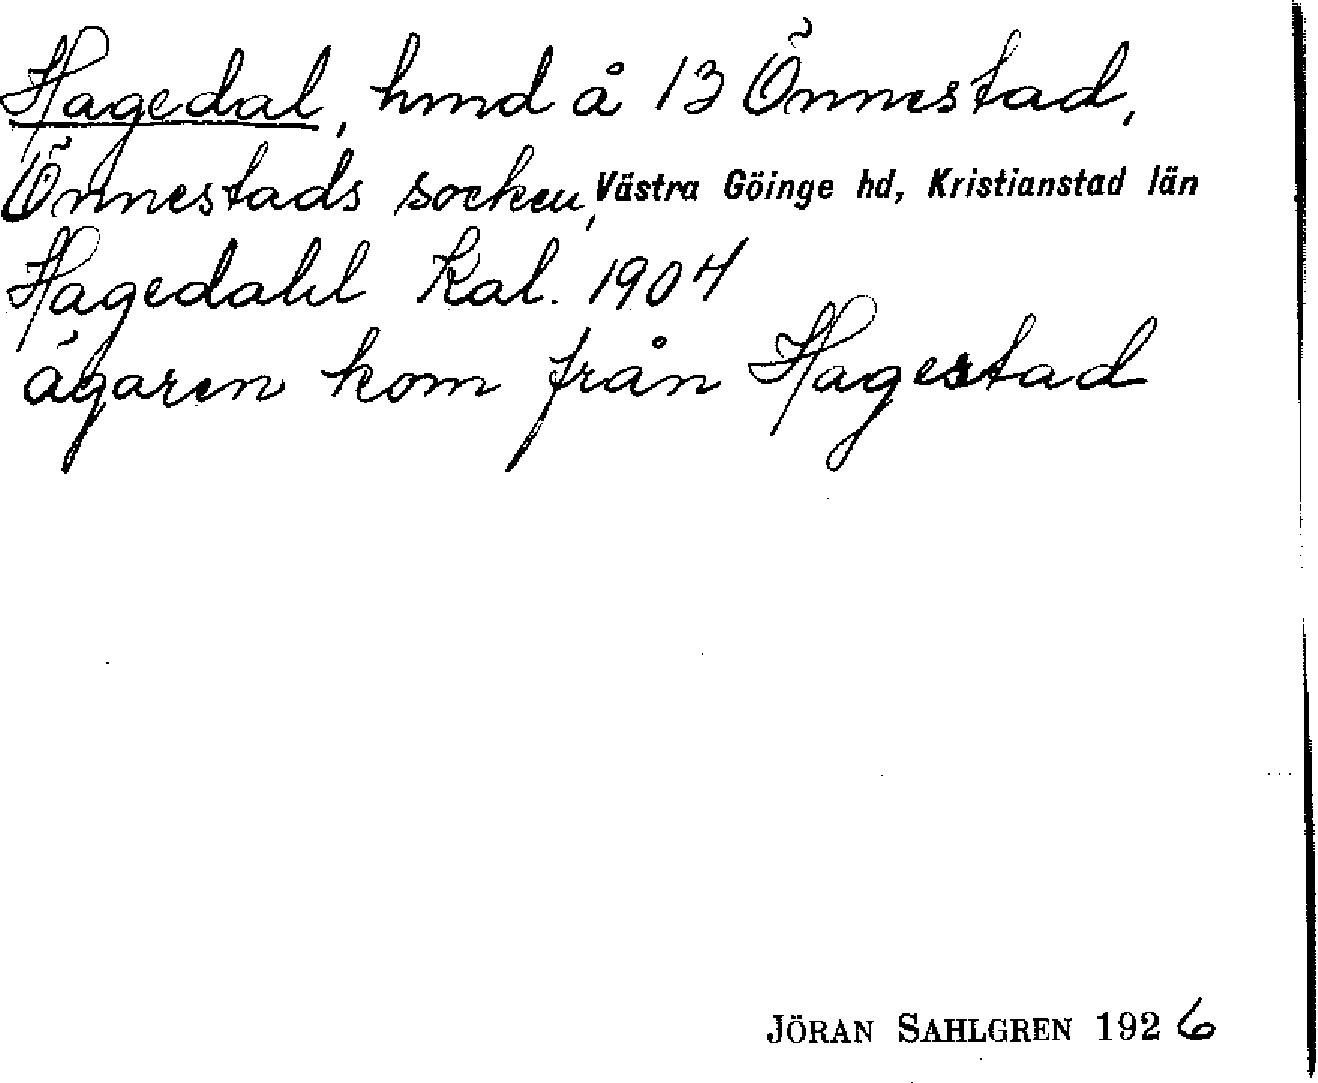 Hagedal, hmd å 13 Önnestad,
Önnestads socken, Västra Göinge hd, Kristianstad län
Hagedahl Kal. 1904
ägaren kom från Hagestad
JÖRAN SAHLGREN 1926